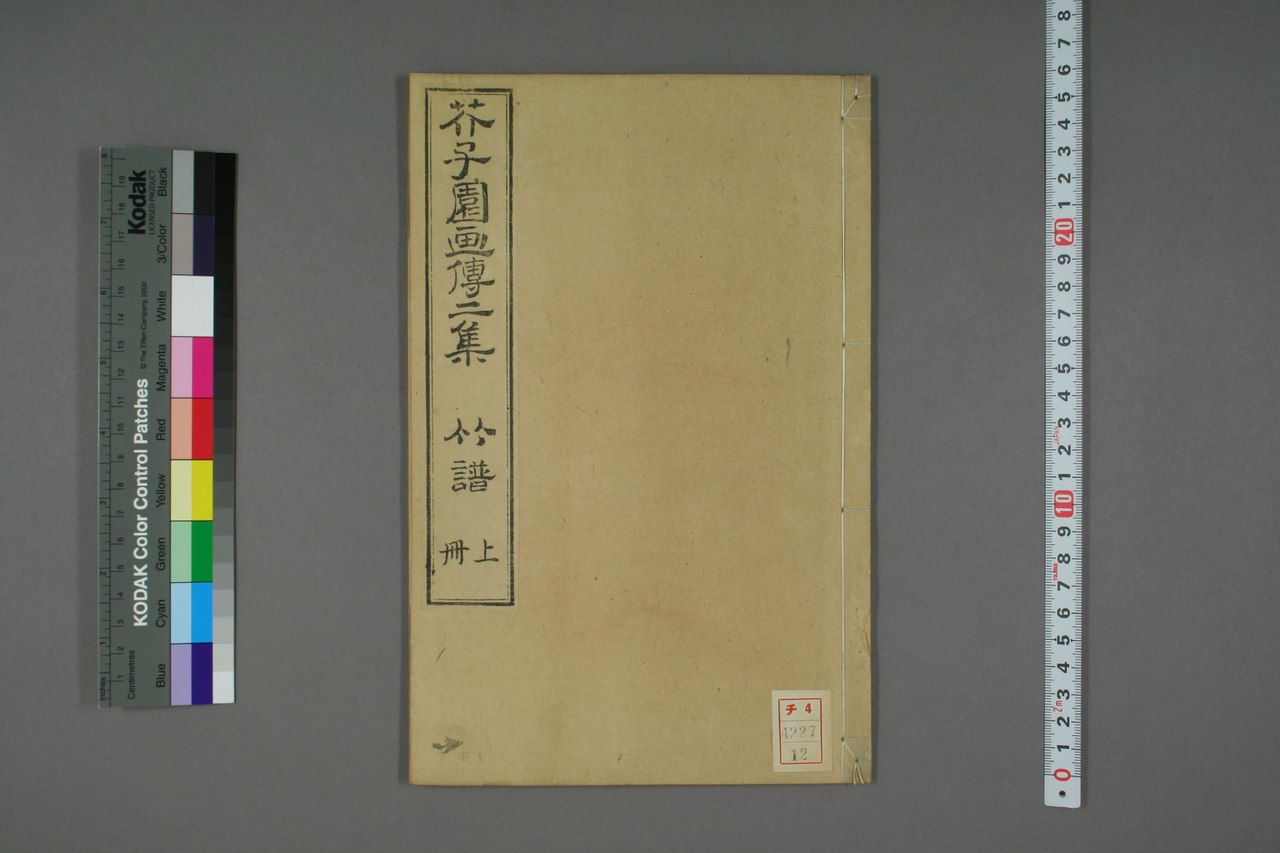 芥子園画傳二集
竹譜
上
冊
チ 4
4227
12
Kodak
LICENSED PRODUCT
KODAK Color Control Patches
© The Tiffen Company, 2000
Blue
Cyan
Green
Yellow
Red
Magenta
White
3/Color
Black
Inches
1
2
3
4
5
6
7
8
Centimetres
1
2
3
4
5
6
7
8
9
10
11
12
13
14
15
16
17
18
19
8
7
6
5
4
3
2
1
20
9
8
7
6
5
4
3
2
1
10
9
8
7
6
5
4
3
2
1
0
JAPAN
2m